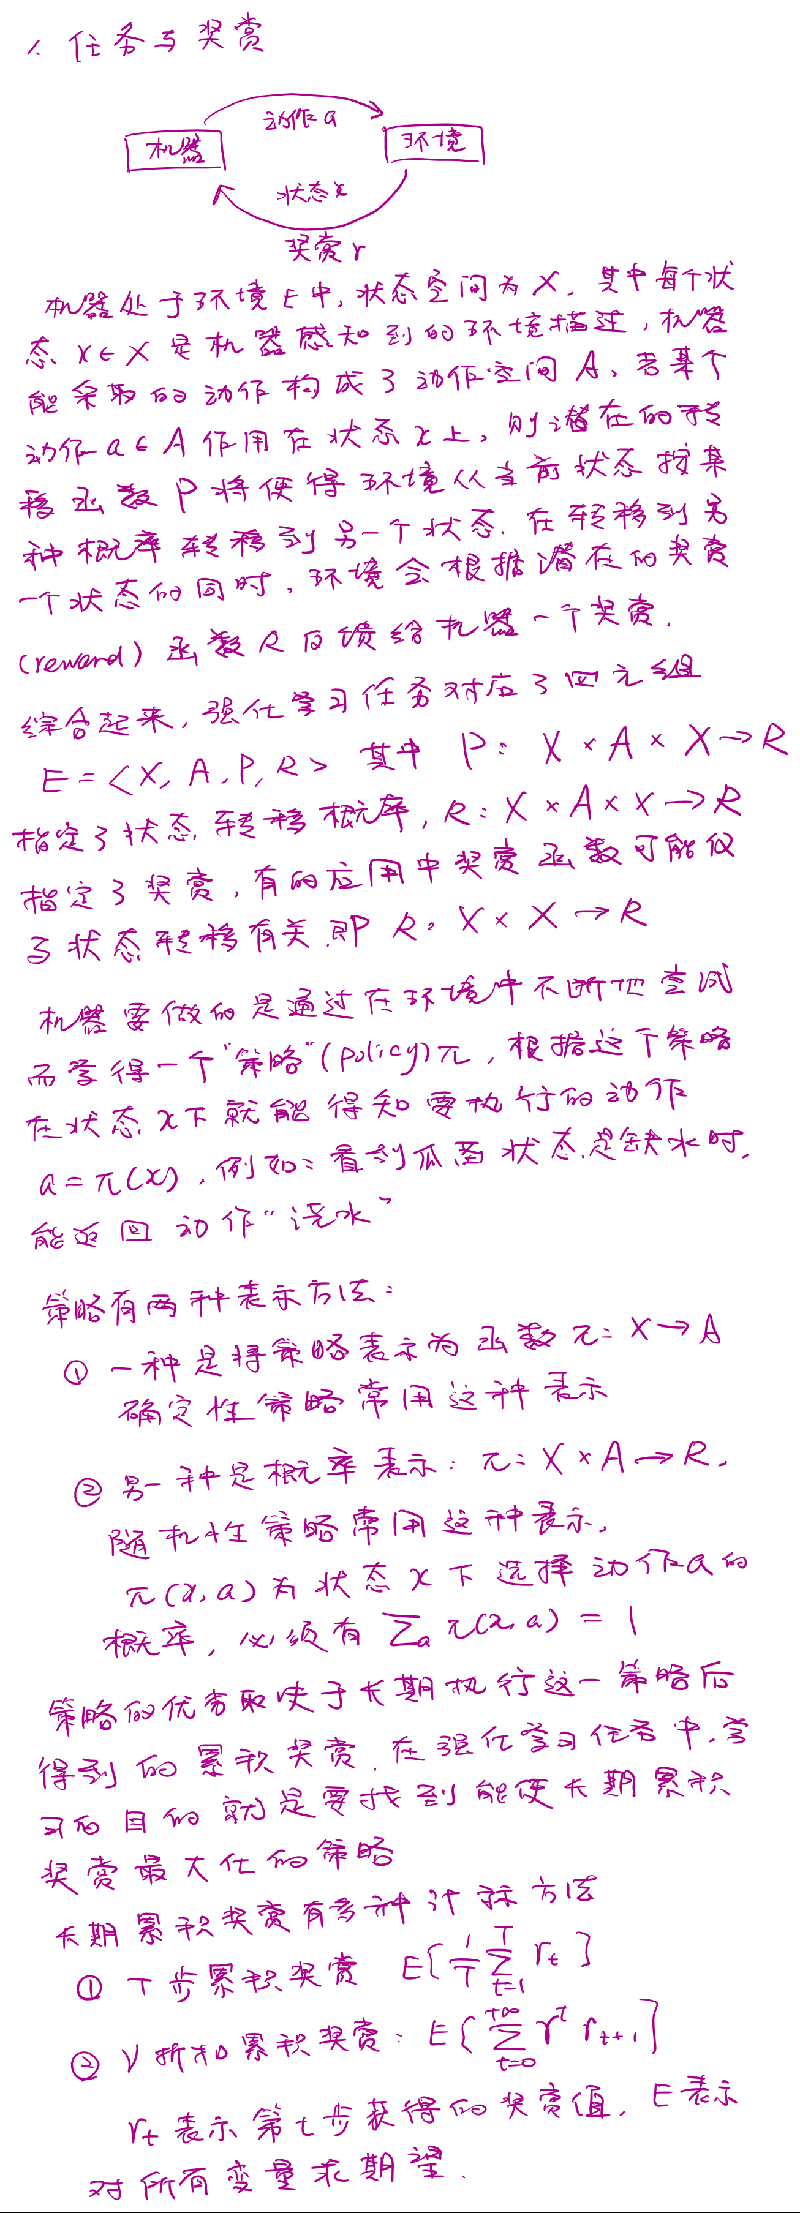 1. 任务与奖赏
动作a
机器
环境
状态x
奖赏r
机器处于环境E中,状态空间为X,其中每个状
态x∈X是机器感知到的环境描述,机器
能采取的动作构成了动作空间A,若某个
动作a∈A作用在状态x上,则潜在的转
移函数P将使得环境从当前状态按某
种概率转移到另一个状态.在转移到另
一个状态的同时,环境会根据潜在的奖赏
(reward)函数R反馈给机器一个奖赏.
综合起来,强化学习任务对应了四元组
E=<X,A,P,R>其中P:X×A×X→R
指定了状态转移概率,R:X×A×X→R
指定了奖赏,有的应用中奖赏函数可能仅
与状态转移有关.即R:X×X→R
机器要做的是通过在环境中不断地尝试
而学得一个"策略"(policy)π,根据这个策略
在状态x下就能得知要执行的动作
a=π(x),例如:看到瓜苗状态是缺水时,
能返回动作"浇水"
策略有两种表示方法:
① 一种是将策略表示为函数π:X→A
确定性策略常用这种表示
② 另一种是概率表示:π:X×A→R,
随机性策略常用这种表示,
π(x,a)为状态x下选择动作a的
概率,必须有∑a π(x,a)=1
策略的优劣取决于长期执行这一策略后
得到的累积奖赏.在强化学习任务中,学
习的目的就是要找到能使长期累积
奖赏最大化的策略
长期累积奖赏有多种计算方法
① T步累积奖赏 E[1/T ∑_{t=1}^{T} r_t]
② γ折扣累积奖赏:E[∑_{t=0}^{+∞} γ^t r_{t+1}]
r_t表示第t步获得的奖赏值,E表示
对所有变量求期望.